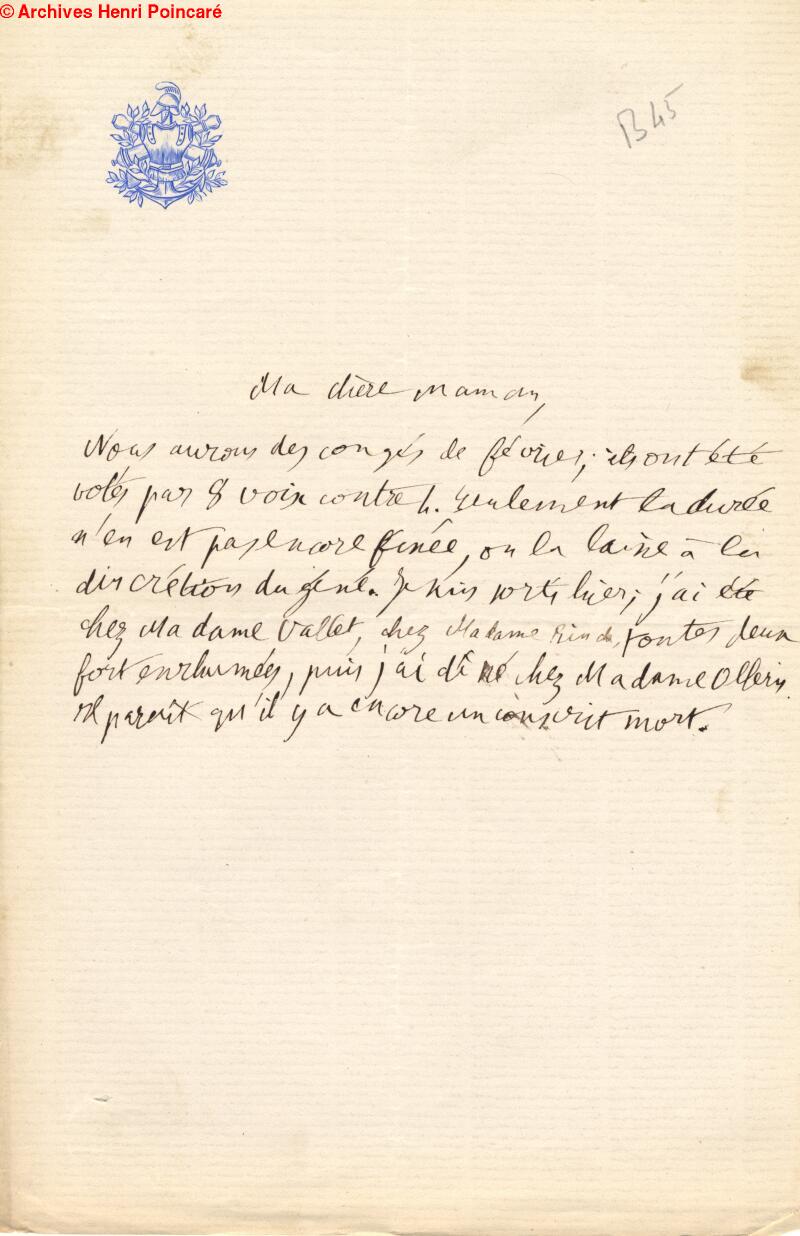 © Archives Henri Poincaré
B45
Ma chère Maman,
Nous aurons des congés de février; ils ont été
votés par 8 voix contre 1. Seulement la durée
n'en est pas encore fixée, on la laisse à la
discrétion du géné. Je suis sorti hier; j'ai été
chez Madame Vallet, chez Madame Rinck, toutes deux
fort enrhumées, puis j'ai dîné chez Madame Olleris.
Il paraît qu'il y a encore un conscrit mort.